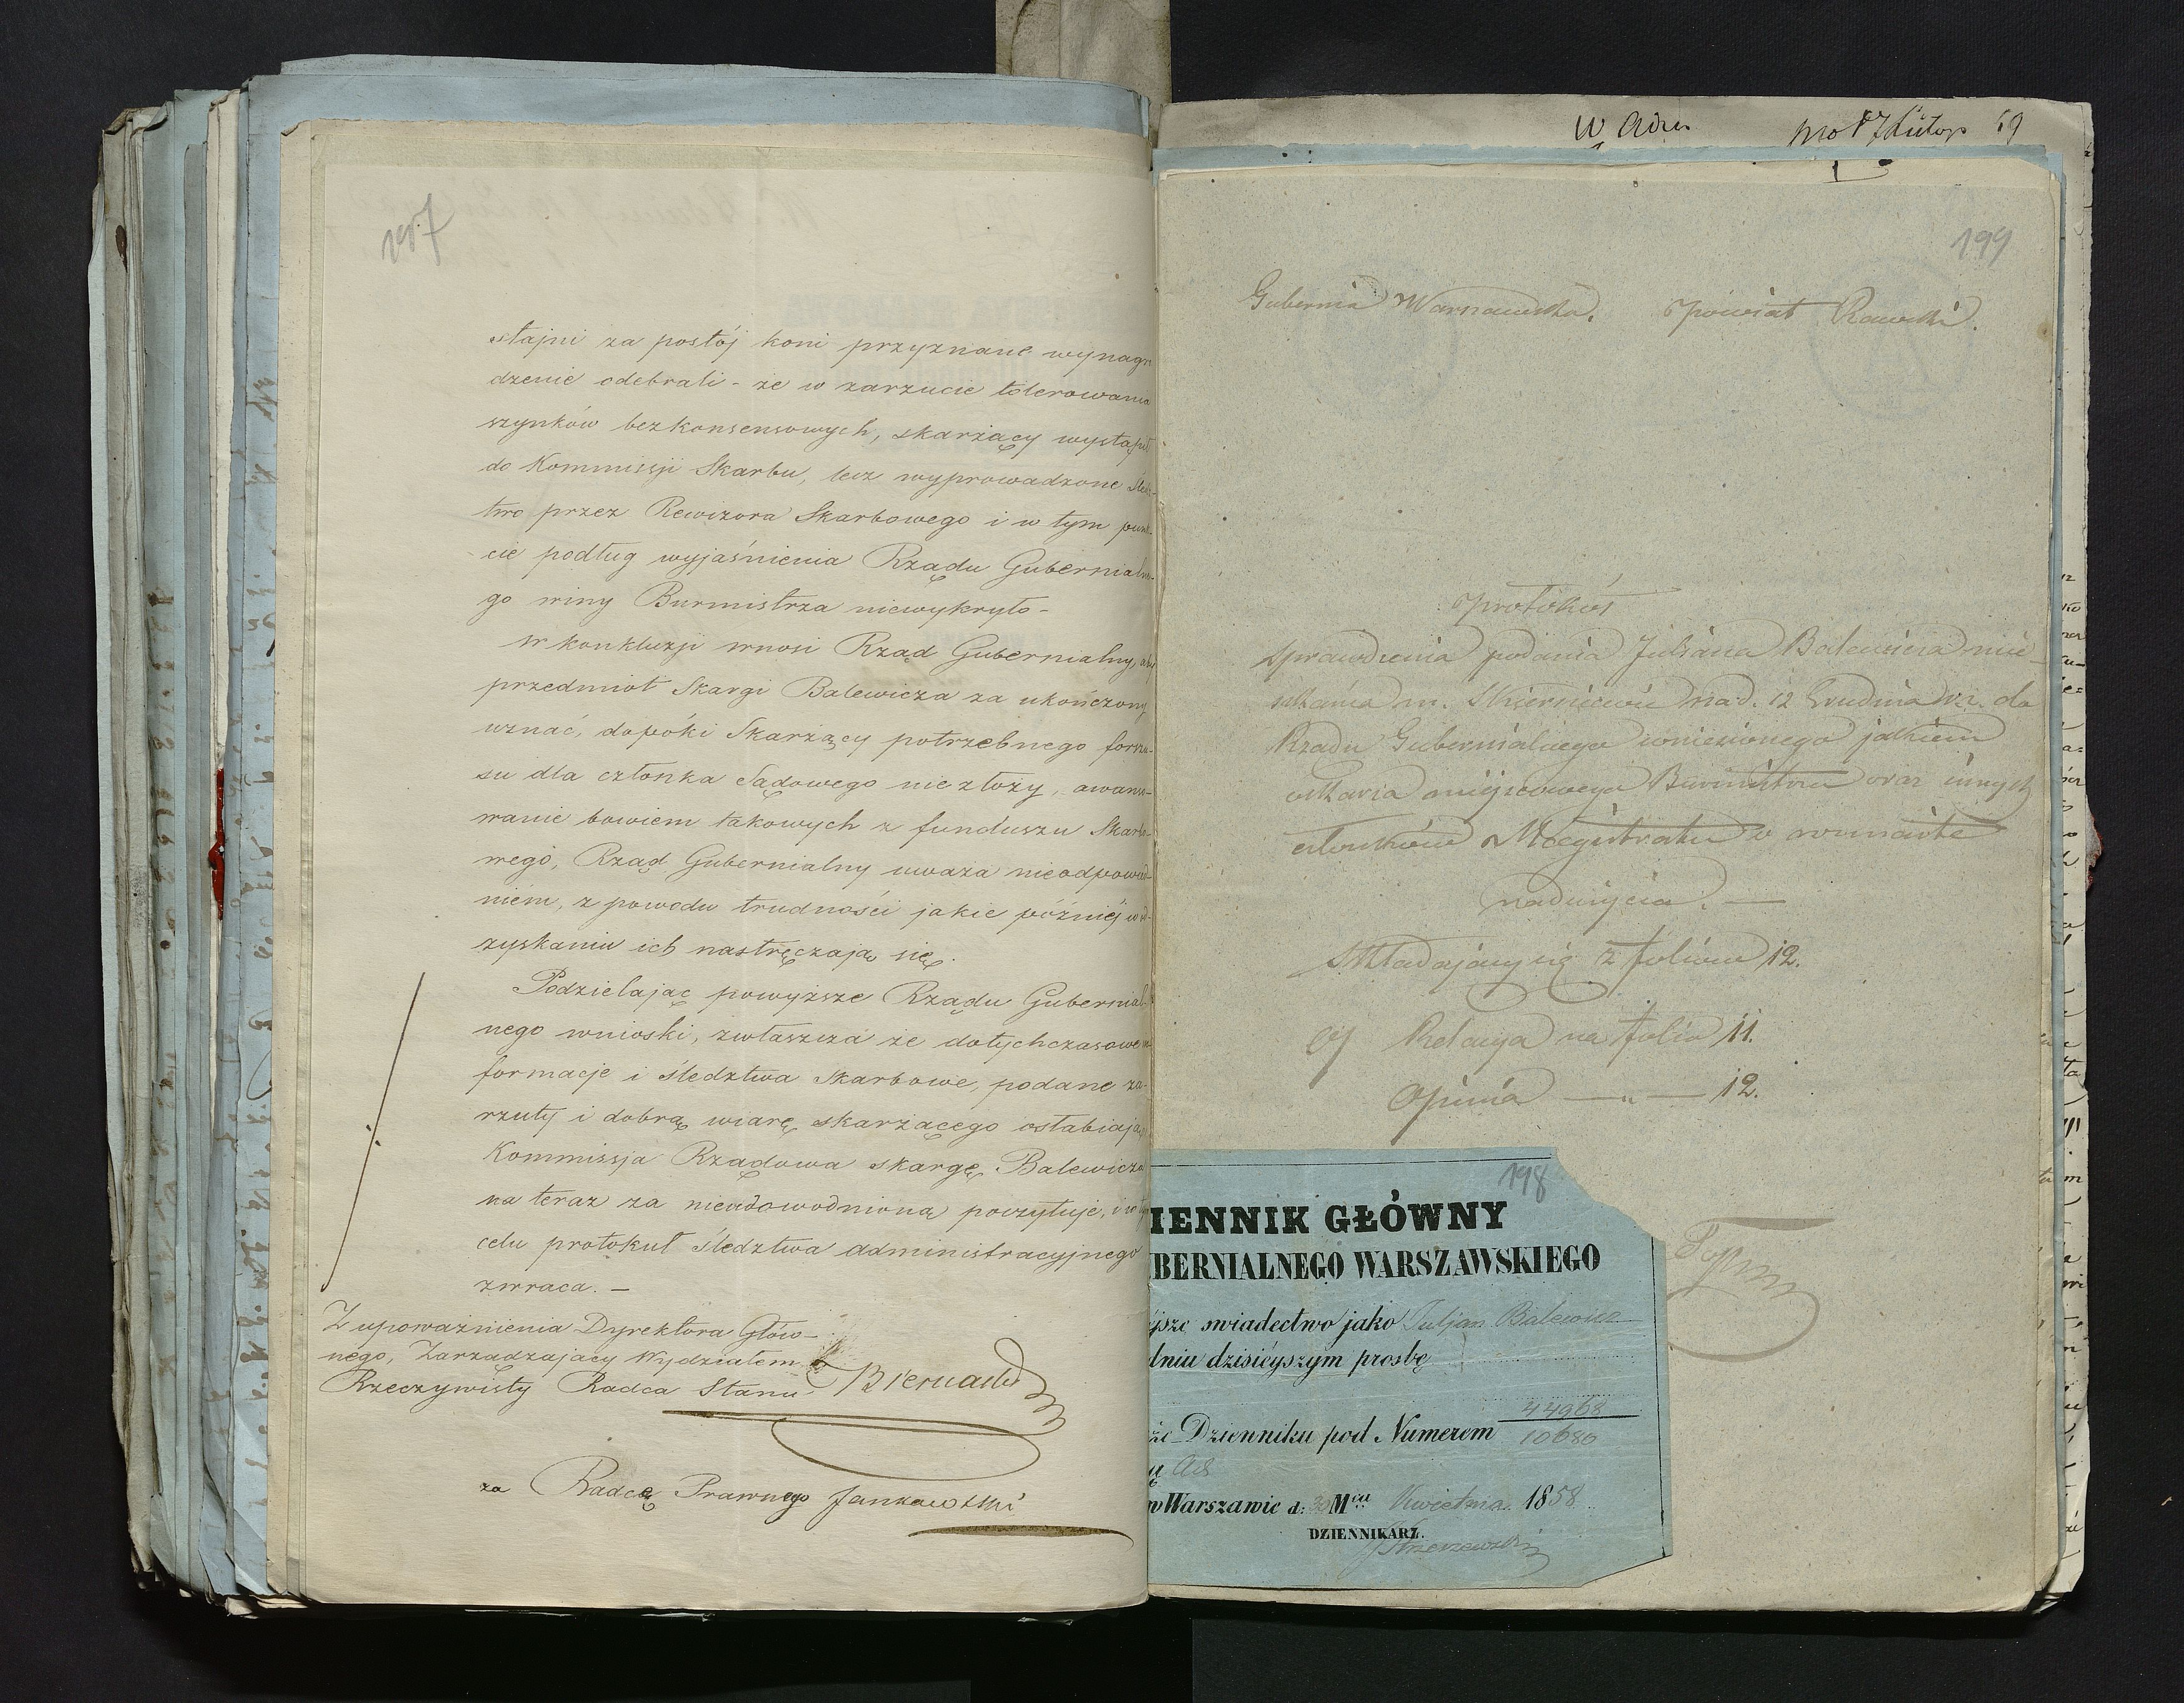 197
stajni za postój koni przyznane wynagro
dzenie odebrali - że w zarzucie tolerowania
szynków bezkonsensowych, skarżący wystąpił
do Kommissji Skarbu, lecz wyprowadzone śledz-
two przez Rewizora Skarbowego i w tym punk-
cie podług wyjaśnienia Rządu Gubernialne-
go winy Burmistrza niewykryto -
w konkluzji wnosi Rząd Gubernialny, aby
przedmiot Skargi Balewicza za ukończony
uznać, dopóki Skarżący potrzebnego forszu-
su dla członka Sądowego nie złoży, awanso-
wanie bowiem takowych z funduszu Skarbo-
wego, Rząd Gubernialny uważa nieodpowied-
niém, z powodu trudności jakie później w od-
zyskaniu ich nastręczają się.
Podzielając powyższe Rządu Gubernial-
nego wnioski, zwłaszcza że dotychczasowe in-
formacje i śledztwa skarbowe, podane za-
rzuty i dobrą wiarę skarżącego osłabiają,
Kommissja Rządowa skargę Balewicza
na teraz za nieudowodnioną poczytuje, i w tym
celu protokuł śledztwa administracyjnego
zwraca. -
Z upoważnienia Dyrektora Głów-
nego, Zarządzający Wydziałem
Rzeczywisty Radca Stanu Biernacki
za Radcę Prawnego Jankowski
199
Gubernia Warszawska. Powiat Rawski.
Protokuł
sprawdzenia podania Juliana Balewicza mie-
szkańca m. Skierniewic na d. 12 Grudnia r.z. do
Rządu Gubernialnego wniesionego jakiem
oskarża miejscowego Burmistrza oraz innych
członków Magistratu o rozmaite
nadużycia. —
Składający się z foliów 12.
Relacya na folio 11.
Opinia — „ — 12.
198
IENNIK GŁÓWNY
BERNIALNEGO WARSZAWSKIEGO
ejsze swiadectwo jako Juljan Balewicz
dniu dzisiéyszym prosbę
że Dzienniku pod Numerem 44968
10680
w Warszawie d: 30 Mca Kwietnia 1858
DZIENNIKARZ.